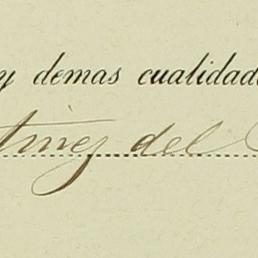 y demas cualidad
tinez del